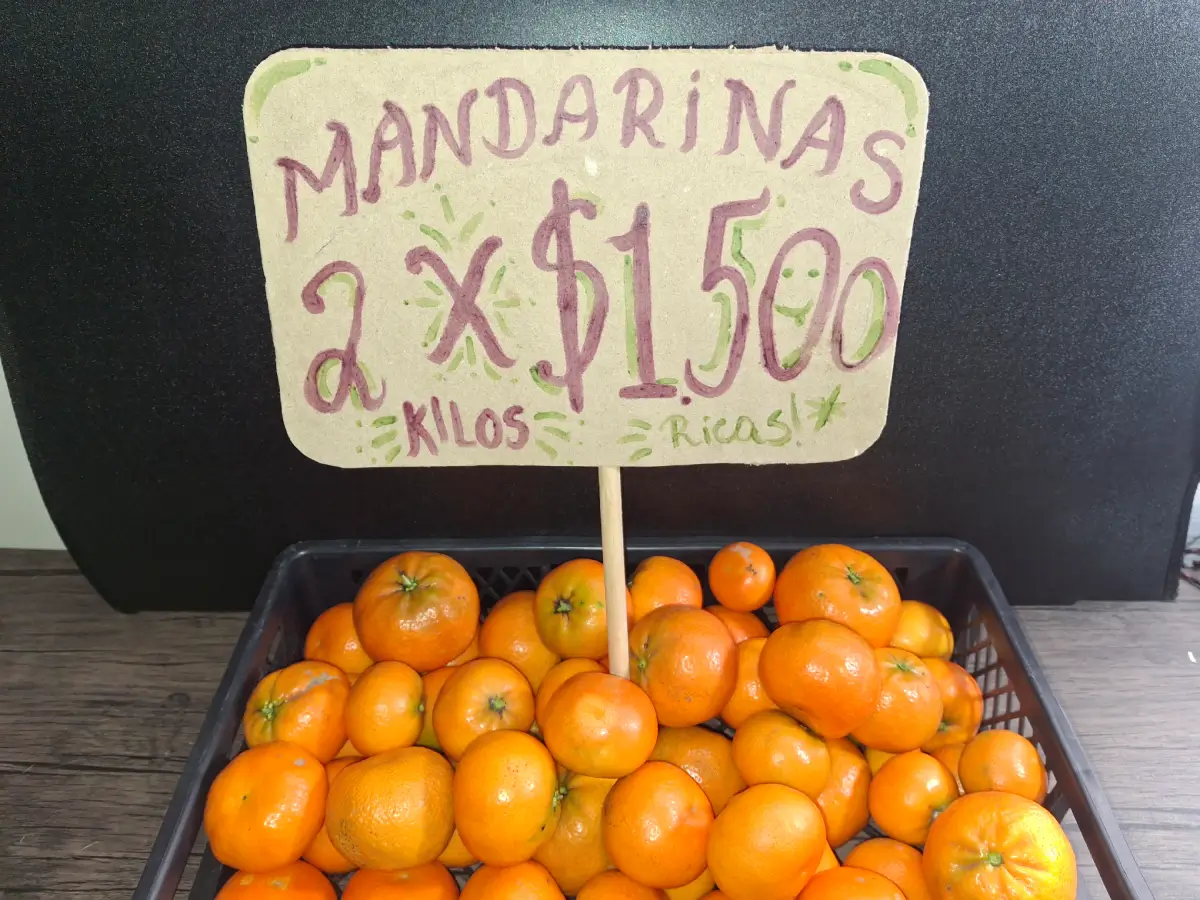 MANDARINAS
2 X $1.500
KILOS Ricas!